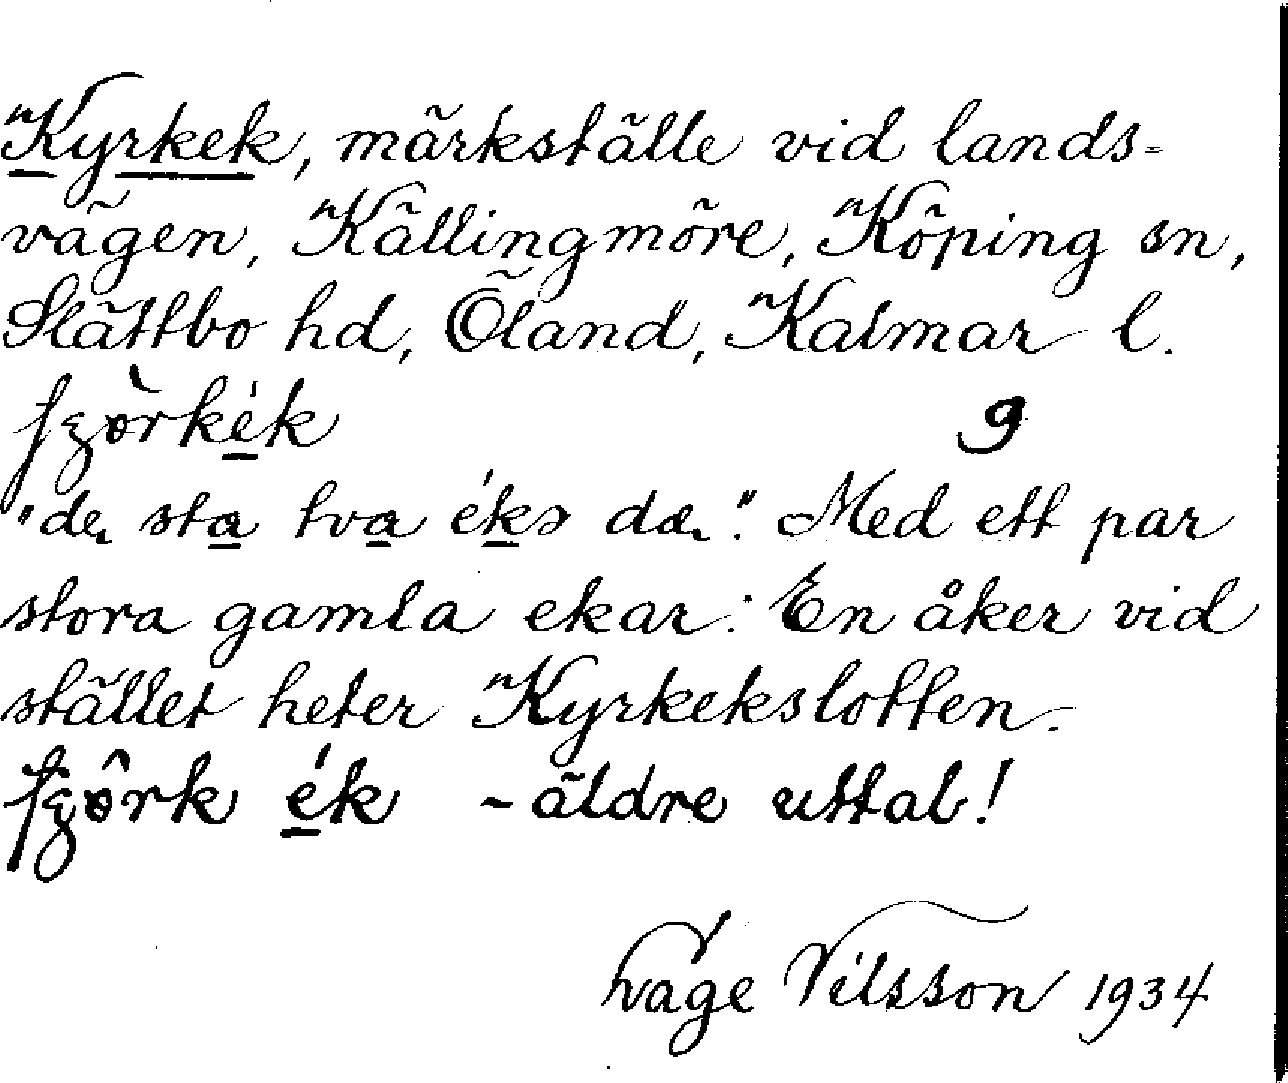 Kyrkek, märkställe vid lands-
vägen, Källingmöre, Köping sn,
Slättbo hd, Öland, Kalmar l.
9
"de sta tva éks dæ". Med ett par
stora gamla ekar. En åker vid
stället heter Kyrkekslotten.
ék - äldre uttal!
Nilsson 1934